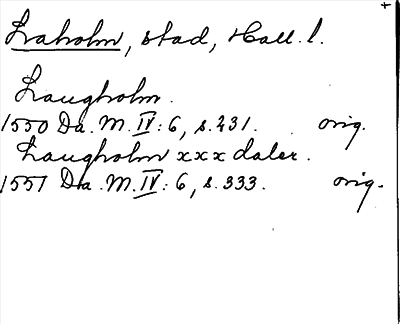 Laholm, stad, Hall. l.
Laugholm.
1550 Da. M. IV: 6, s. 231. orig.
Laugholm xxx daler.
1551 Da. M. IV: 6, s. 333. orig.